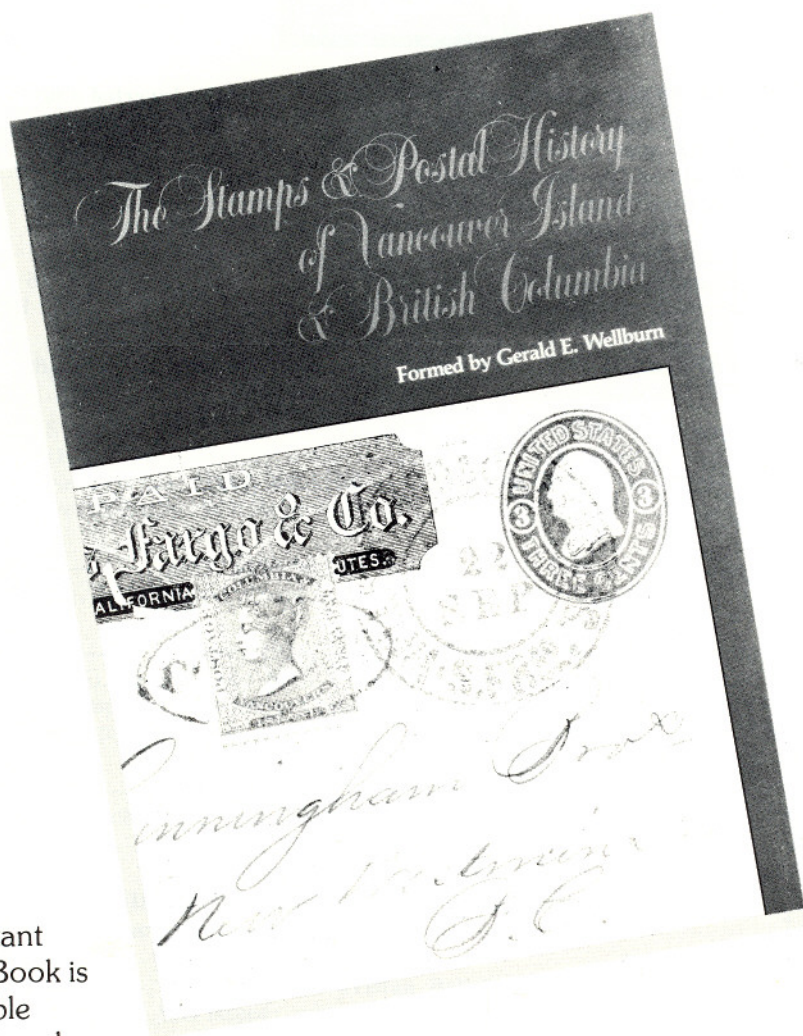 The Stamps & Postal History
of Vancouver Island
& British Columbia
Formed by Gerald E. Wellburn
PAID
Fargo & Co.
ALIFORNIA
UTES.
UNITED STATES
3
3
THREE CENTS
COLUMBIA
22
SEP
nningham Bros
New Westmins
B. C.
ant
Book is
ple